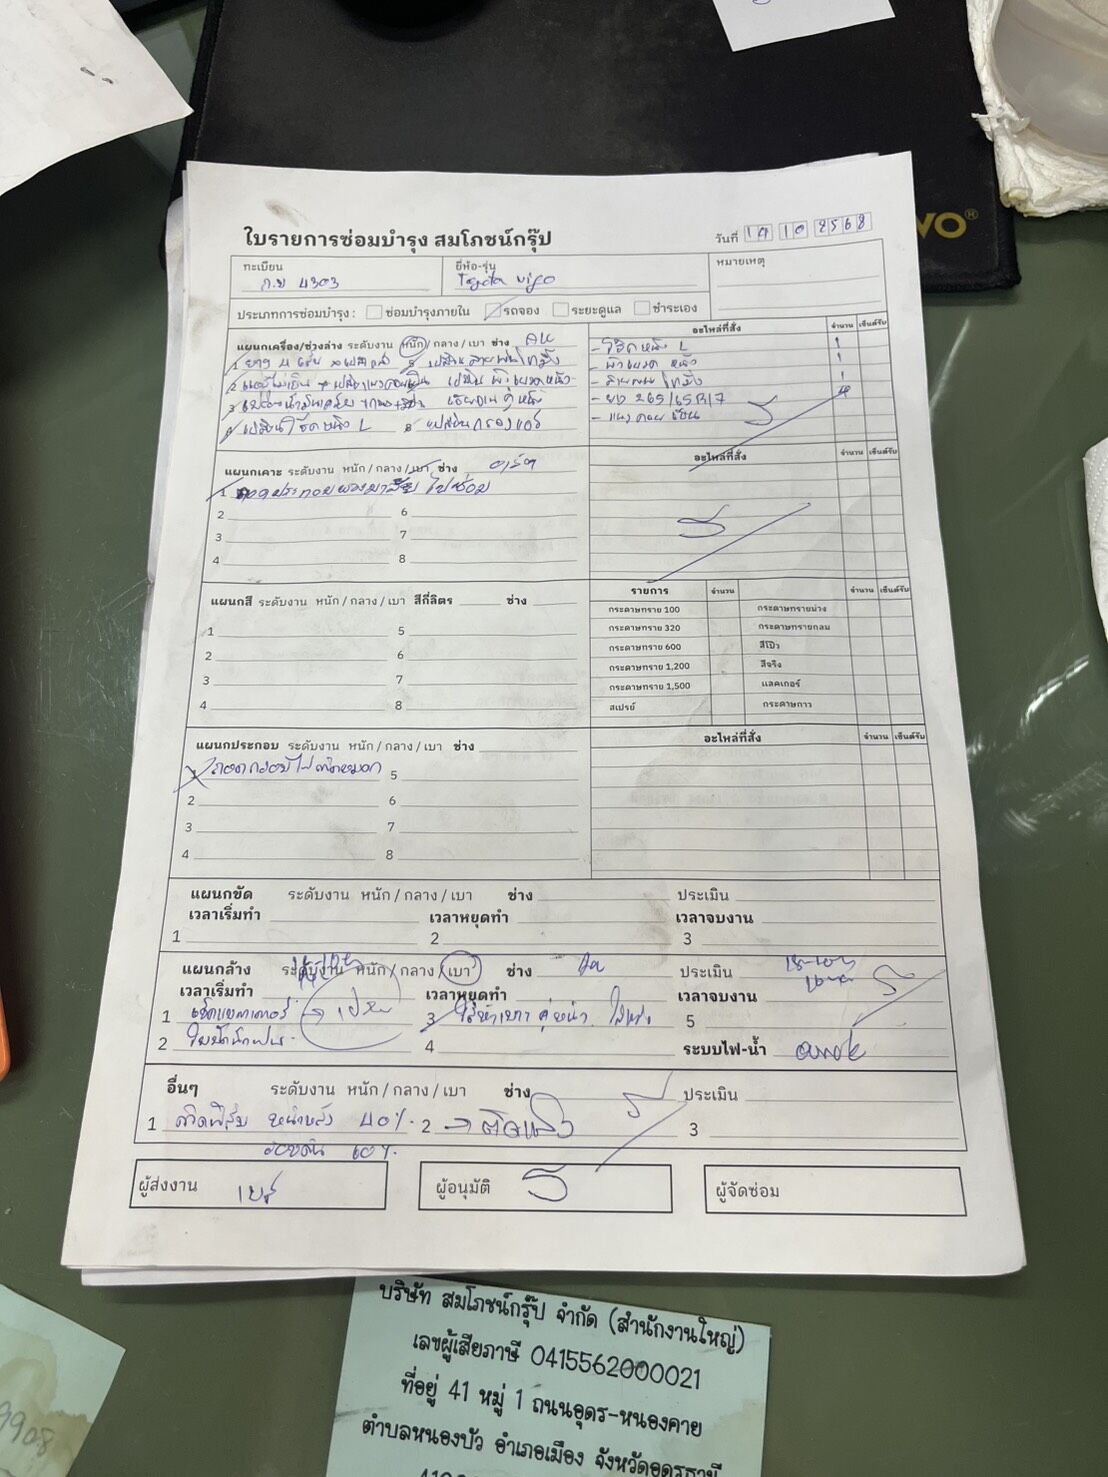 ใบรายการซ่อมบำรุง สมโภชน์กรุ๊ป
วันที่ 14 10 2568
WO®
ทะเบียน
4303
ยี่ห้อ-รุ่น
Toyota vigo
หมายเหตุ
ประเภทการซ่อมบำรุง : ซ่อมบำรุงภายใน รถจอง ระยะดูแล ชำระเอง
แผนกเครื่อง/ช่วงล่าง ระดับงาน หนัก / กลาง / เบา ช่าง
อะไหล่ที่สั่ง จำนวน เซ็นต์รับ
1 ยาง 4 เส้น
5 เปลี่ยนสายพาน
2
เปลี่ยน ผ้าเบรค หลัง
3
4 เปลี่ยนโช๊คหลัง L
8 เปลี่ยนกรองแอร์
- โช๊คหลัง L 1
- ผ้าเบรค หลัง 1
- สายพาน 1
- ยาง 265/65R17 4
-
แผนกเคาะ ระดับงาน หนัก / กลาง / เบา ช่าง
อะไหล่ที่สั่ง จำนวน เซ็นต์รับ
1 ไปซ่อม
2 6
3 7
4 8
แผนกสี ระดับงาน หนัก / กลาง / เบา สีกี่ลิตร ช่าง
รายการ จำนวน จำนวน เซ็นต์รับ
1 5
2 6
3 7
4 8
กระดาษทราย 100 กระดาษทรายม่วง
กระดาษทราย 320 กระดาษทรายกลม
กระดาษทราย 600 สีโป๊ว
กระดาษทราย 1,200 สีจริง
กระดาษทราย 1,500 แลคเกอร์
สเปรย์ กระดาษกาว
แผนกประกอบ ระดับงาน หนัก / กลาง / เบา ช่าง
อะไหล่ที่สั่ง จำนวน เซ็นต์รับ
1 ถอดกรอบไฟตัดหมอก 5
2 6
3 7
4 8
แผนกขัด ระดับงาน หนัก / กลาง / เบา ช่าง ประเมิน
เวลาเริ่มทำ เวลาหยุดทำ เวลาจบงาน
1 2 3
แผนกล้าง ระดับงาน หนัก / กลาง / เบา ช่าง ประเมิน
เวลาเริ่มทำ เวลาหยุดทำ เวลาจบงาน
1 3 5
2 ใบปัดน้ำฝน 4 ระบบไฟ-น้ำ
อื่นๆ ระดับงาน หนัก / กลาง / เบา ช่าง ประเมิน
1 ติดฟิล์ม หน้าหลัง 40% 2 → ติดแล้ว 3
รอบคัน 60%
ผู้ส่งงาน
ผู้อนุมัติ
ผู้จัดซ่อม
บริษัท สมโภชน์กรุ๊ป จำกัด (สำนักงานใหญ่)
เลขผู้เสียภาษี 0415562000021
ที่อยู่ 41 หมู่ 1 ถนนอุดร-หนองคาย
ตำบลหนองบัว อำเภอเมือง จังหวัดอุดรธานี
9908